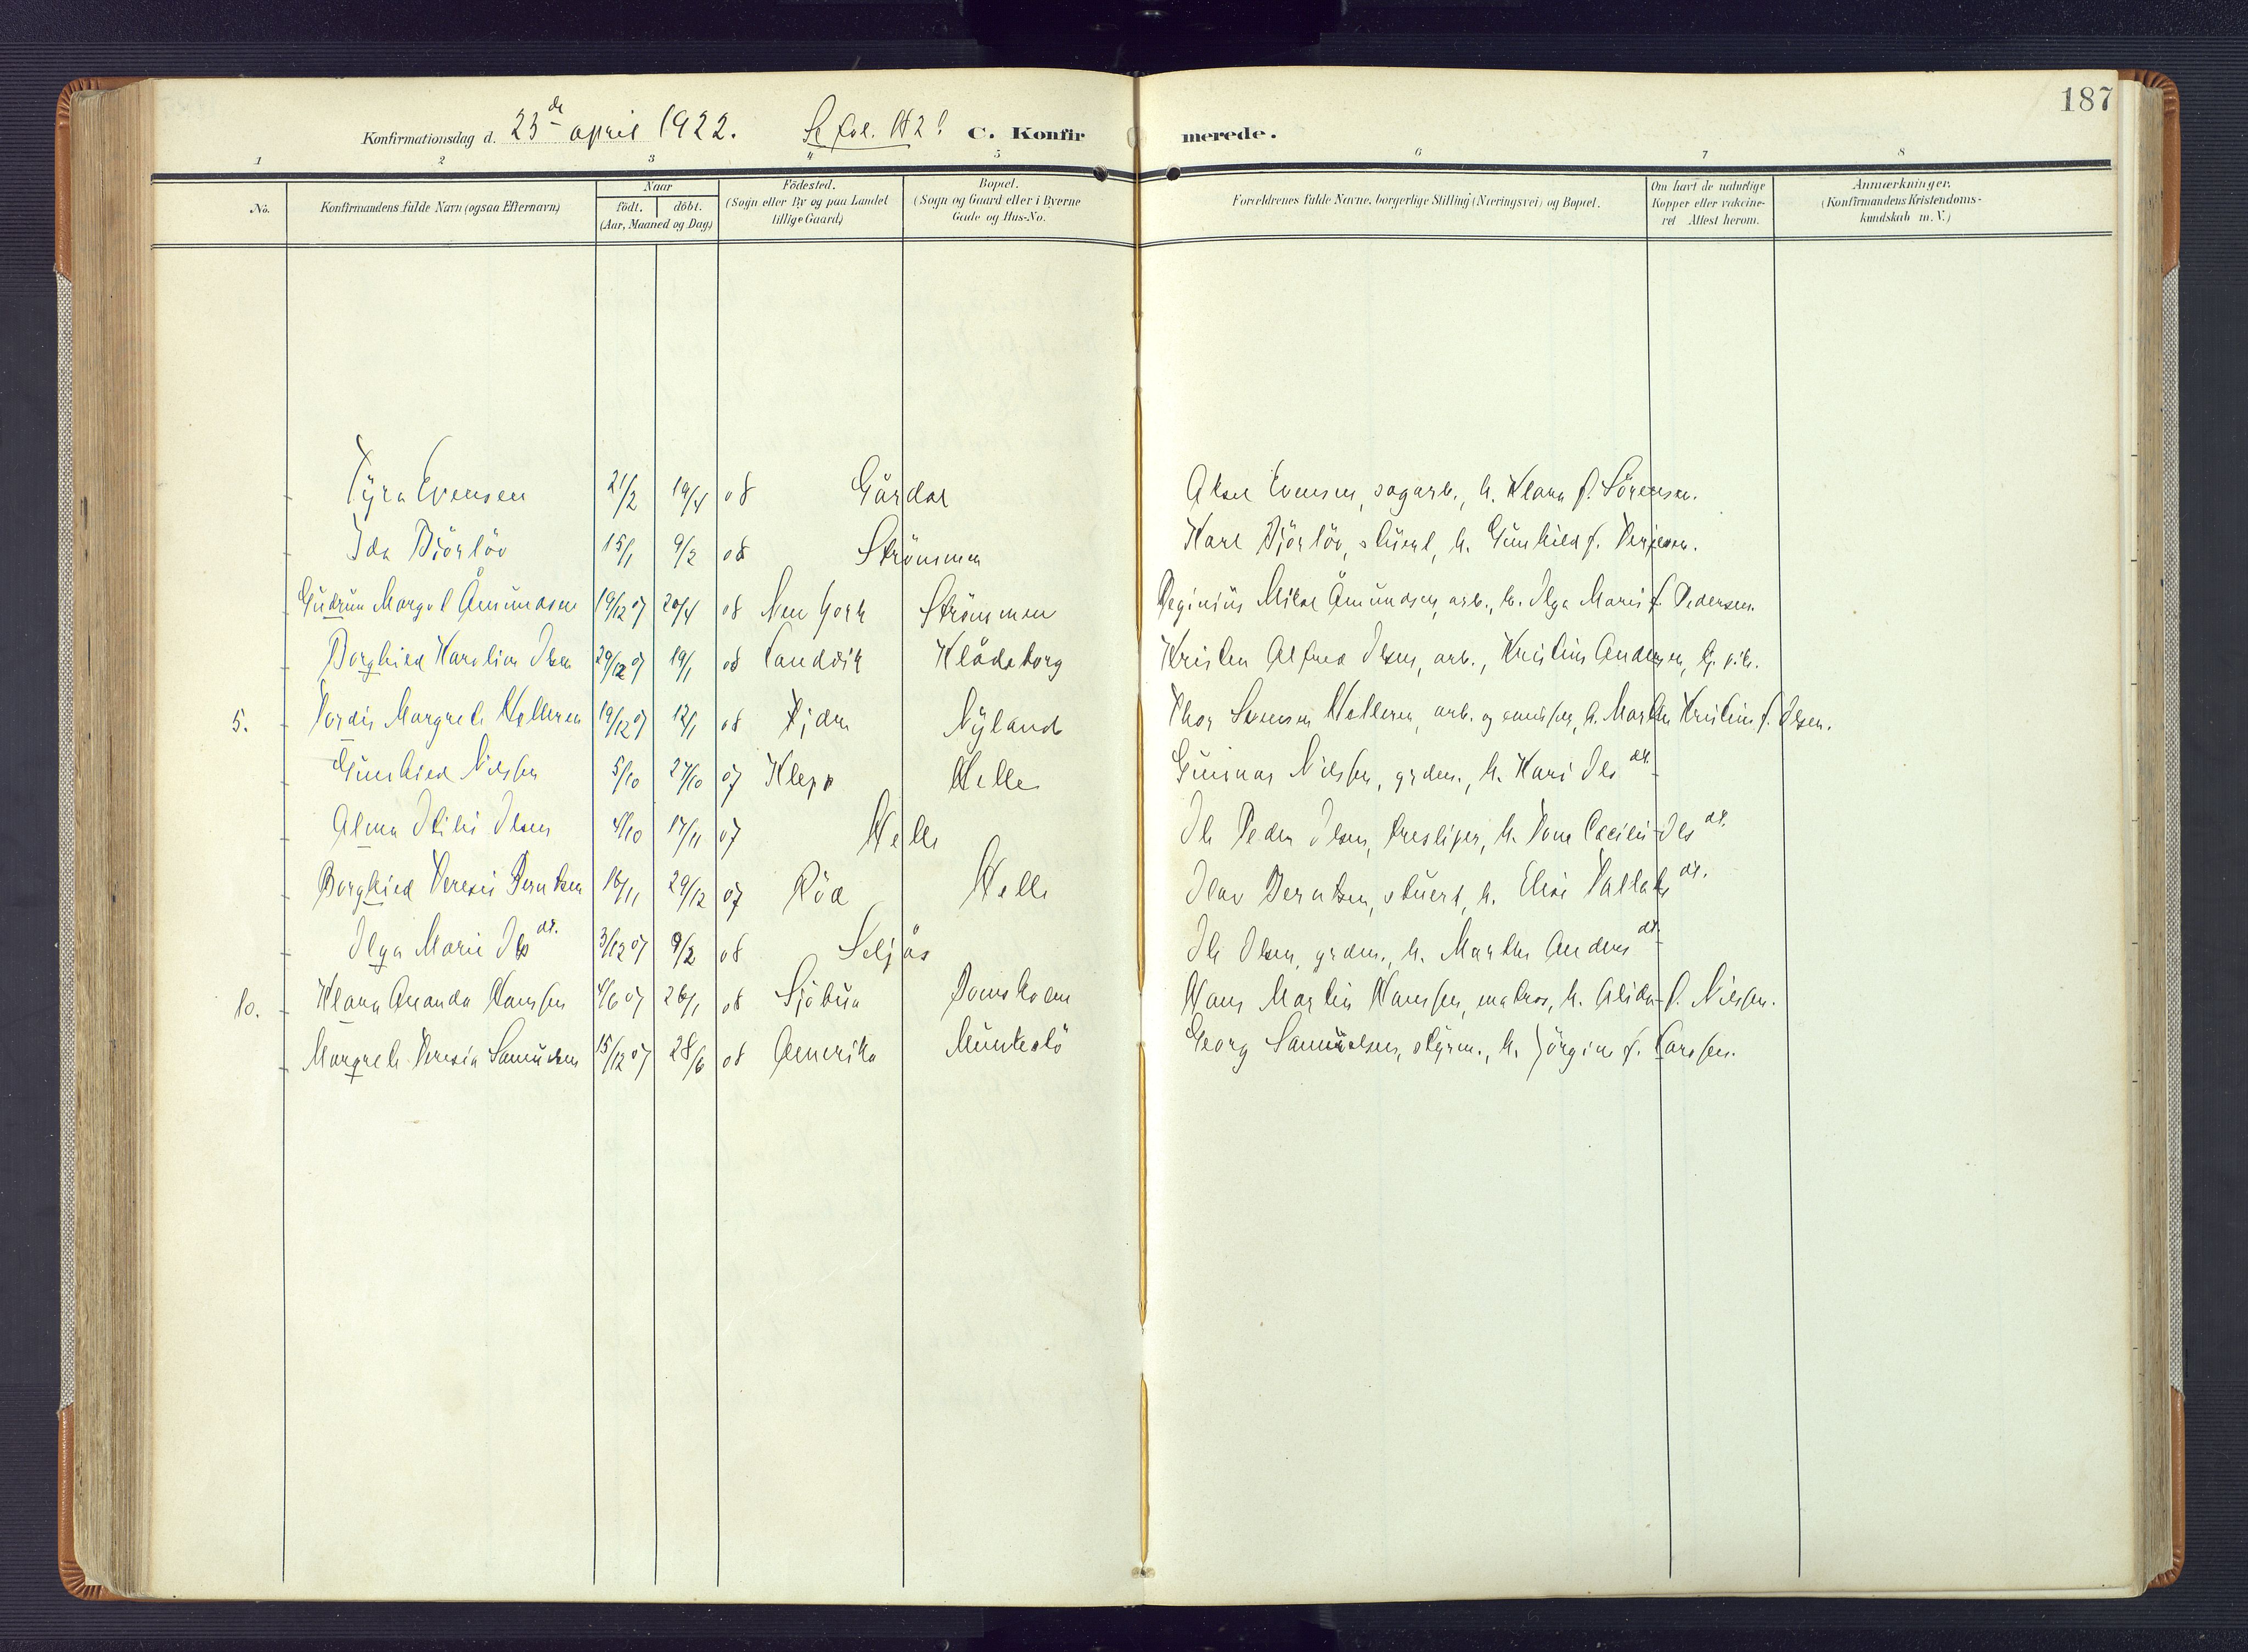 187
Konfirmationsdag d. 23de april 1922. Se fol. 182! C. Konfir merede.
1 2 3 4 5 6 7 8
No. Konfirmandens fulde Navn (ogsaa Efternavn) Naar födt. döbt. (Aar, Maaned og Dag) Födested. (Sogn eller By og paa Landet tillige Gaard) Bopæl. (Sogn og Gaard eller i Byerne Gade og Hus-No. Forældrenes fulde Navne, borgerlige Stilling (Næringsvei) og Bopæl. Om havt de naturlige Kopper eller vaccineret Attest herom. Anmærkninger. (Konfirmandens Kristendomskundskab m. V.)
Tyra Evensen 21/2 19/4 08 Gårdal Aksel Evensen, sagarb., h. Klara f. Sörensen.
Ida Björlöv 15/1 9/2 08 Strömmen Karl Björlöv, stuert, h. Gunhild f.
Gudrun Margot Åmundsen 19/12 07 20/4 08 New York Strömmen Reginius Mikal Åmundsen, arb., h. Olga Marie f. Pedersen.
Borghild Karoline Olsen 29/12 07 19/1 08 Landvik Klödeborg Kristen Alfred Olsen, arb., Kristine Andersen,
5. Tordis Margrete Helleren 19/12 07 12/1 08 Nyland Thor Helleren, arb. og h. Marthe Kristine f. Olsen.
Gunhild Nilsen 5/10 27/10 07 Klepp Helle Gunnar Nilsen, grdm., h. Kari Olsdt.
Alma Otilie Olsen 4/10 17/11 07 Helle Ole Peder Olsen, h. Tone Cecilie Olsdt.
Borghild Teresie Berntsen 18/11 29/12 07 Röd Helle Olav Berntsen, stuert, h. Elise Tallaksdt.
Olga Marie Olsdt. 3/12 07 9/2 08 Seljås Ole Olsen, grdm., h. Marthe Andersdt.
10. Klara Amanda Hansen 4/6 07 26/1 08 Sjöbua Domholm Hans Martin Hansen, matros, h. Alida f. Nilsen.
Margrete Teresia Samuelsen 15/12 07 28/6 08 Amerika Munkeslö Georg Samuelsen, styrm., h. Jörgine f. Larsen.